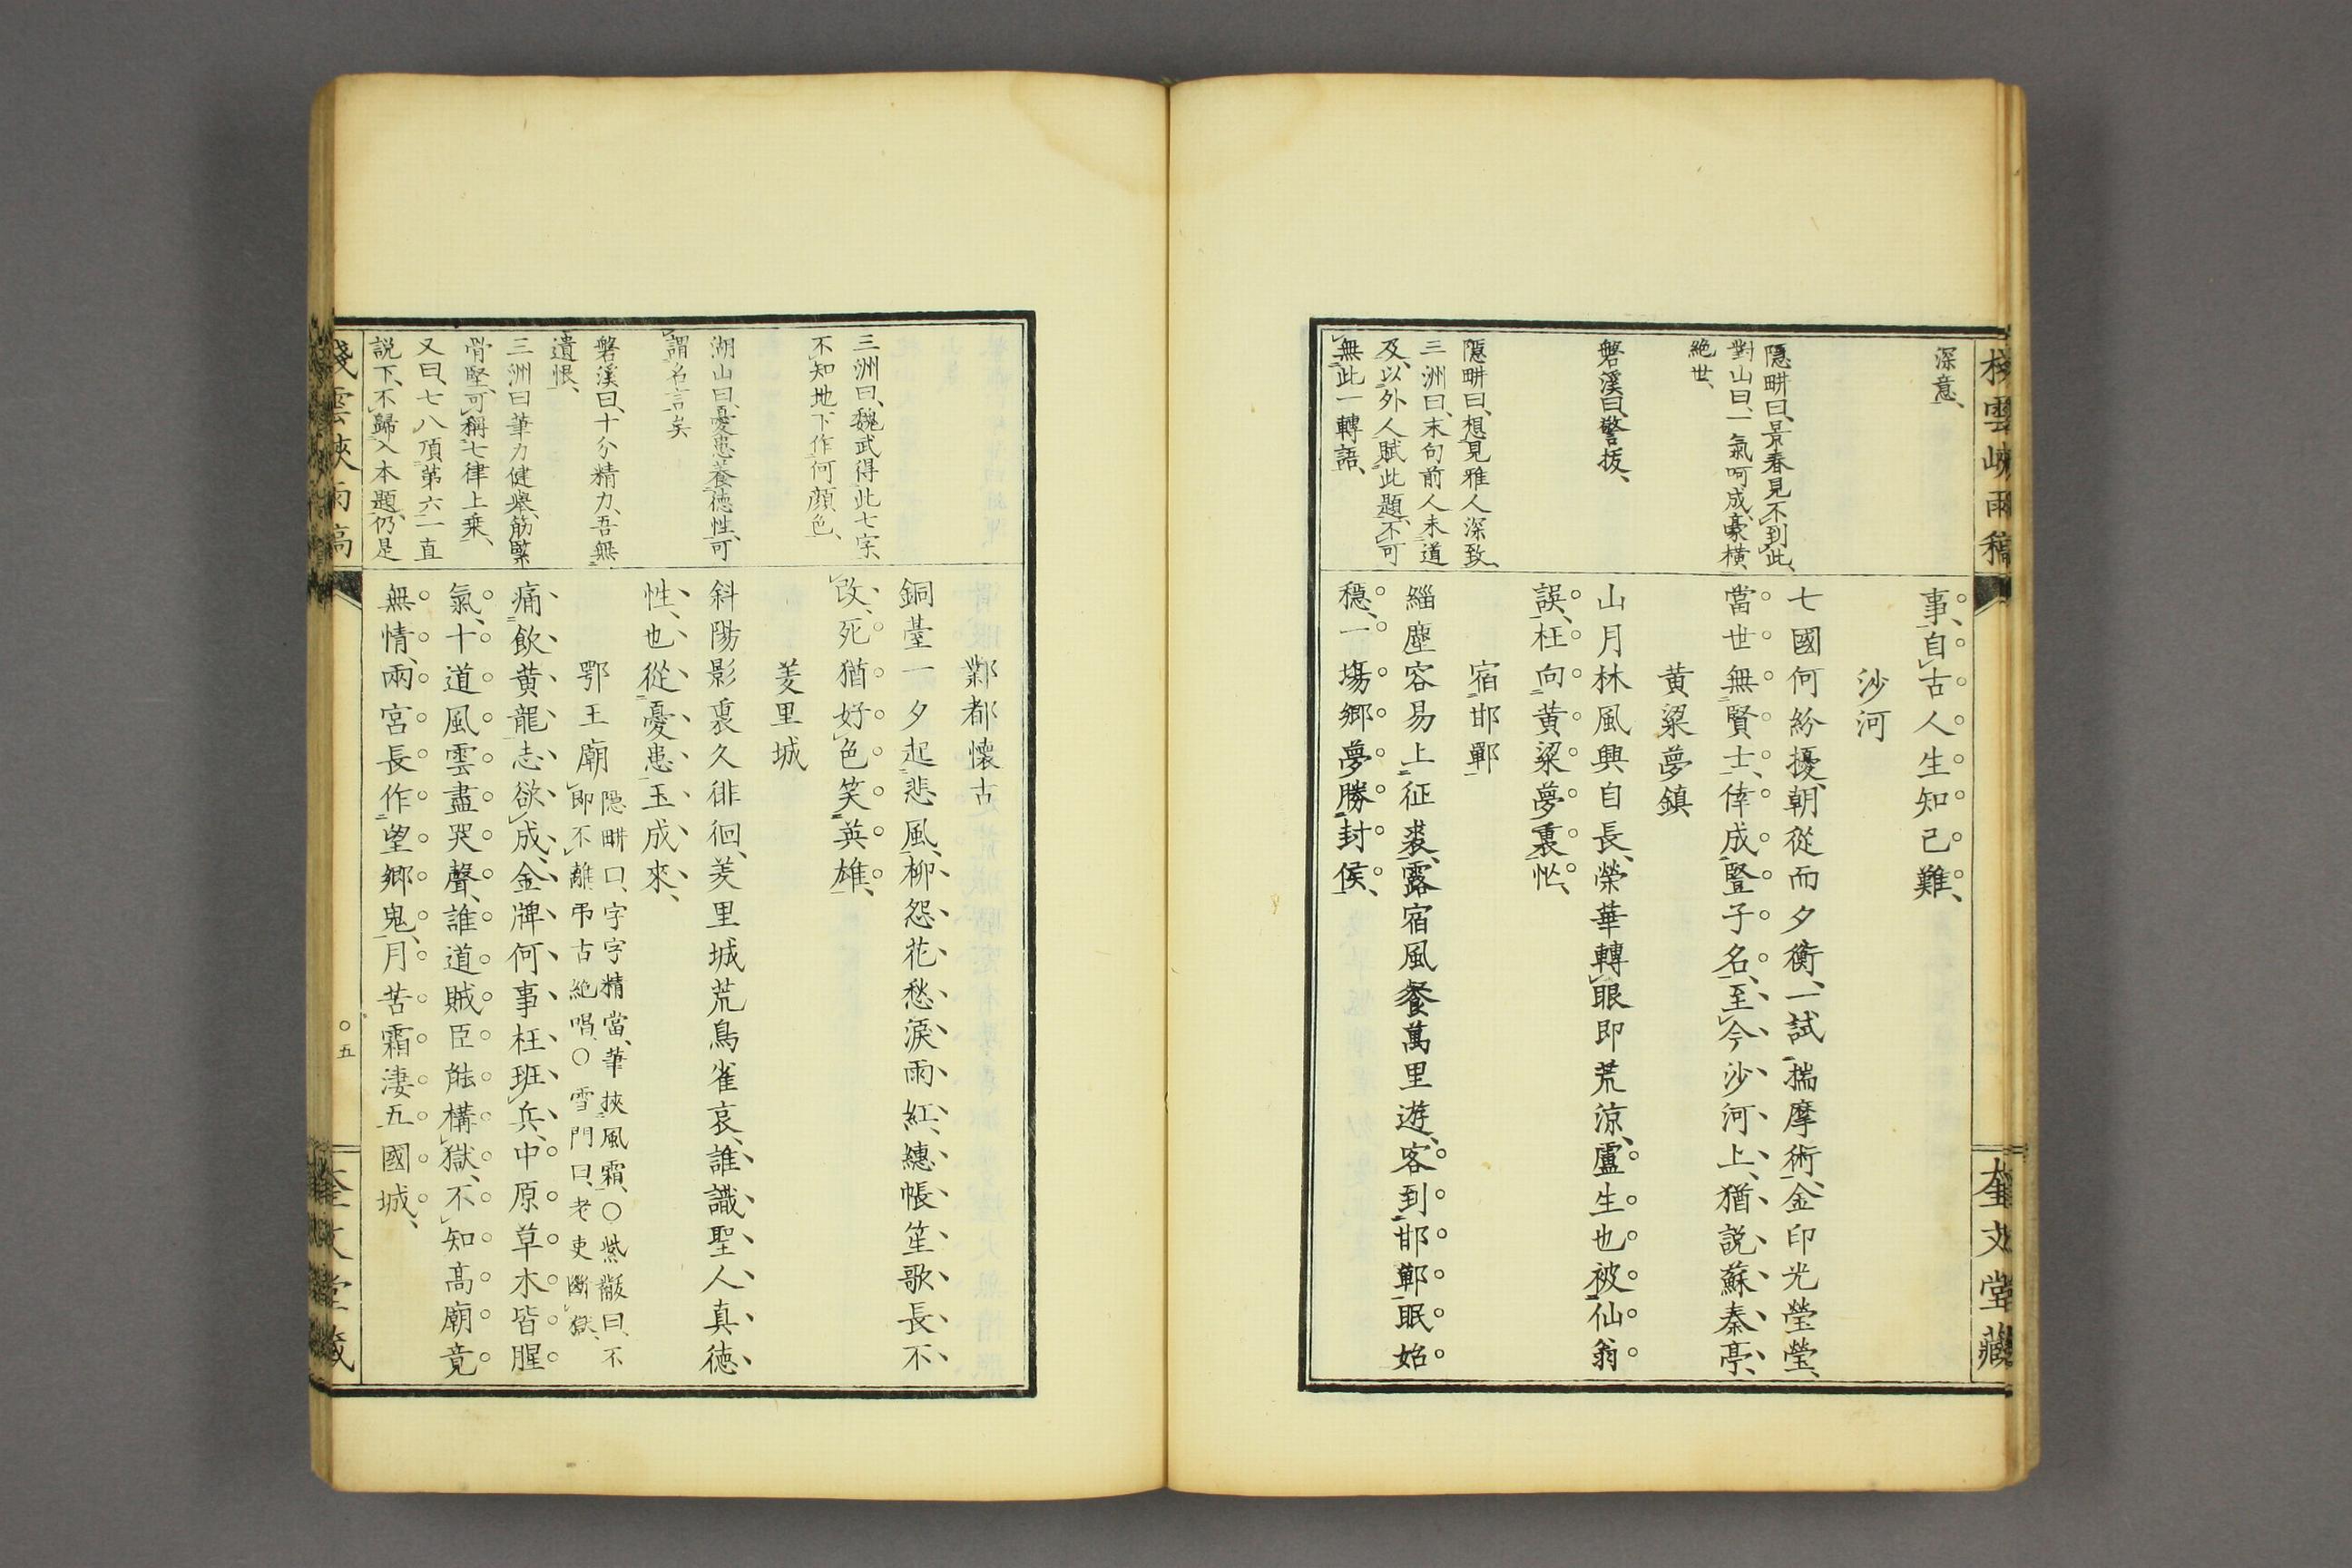 棧雲峽雨稿
奎文堂藏
深意、
隱畊曰、景春見不到此、
對山曰、一氣呵成、豪橫
絶世、
磐溪曰、警拔、
隱畊曰、想見雅人深致、
三洲曰、末句前人未道
及、以外人賦此題、不可
無此一轉語、
事、自古人生知己難、
沙河
七國何紛擾、朝從而夕衡、一試揣摩術、金印光瑩瑩、
當世無賢士、倖成豎子名、至今沙河上、猶說蘇秦亭、
黃粱夢鎮
山月林風興自長、榮華轉眼即荒涼、盧生也被仙翁
誤、枉向黃粱夢裏忙、
宿邯鄲
緇塵容易上征裘、露宿風餐萬里遊、客到邯鄲眠始
穩、一場鄉夢勝封侯、
三洲曰、魏武得此七字、
不知地下作何顏色、
湖山曰、憂患養德性、可
謂名言矣
磐溪曰、十分精力、吾無
遺恨、
三洲曰筆力健舉、筋緊
骨堅、可稱七律上乘、
又曰、七八頂第六一直
說下、不歸入本題、仍是
鄴都懷古
銅臺一夕起悲風、柳怨花愁淚雨紅、繐帳笙歌長不
改、死猶好色笑英雄、
羑里城
斜陽影裏久徘徊、羑里城荒鳥雀哀、誰識聖人真德
性、也從憂患玉成來、
鄂王廟
隱畊曰、字字精當、筆挾風霜、○紫巘曰、不
即不離、弔古絶唱、○雪門曰、老吏斷獄、
痛飲黃龍志欲成、金牌何事枉班兵、中原草木皆腥
氣、十道風雲盡哭聲、誰道賊臣能構獄、不知高廟竟
無情、兩宮長作望鄉鬼、月苦霜淒五國城、
棧雲峽雨稿
○五
奎文堂藏